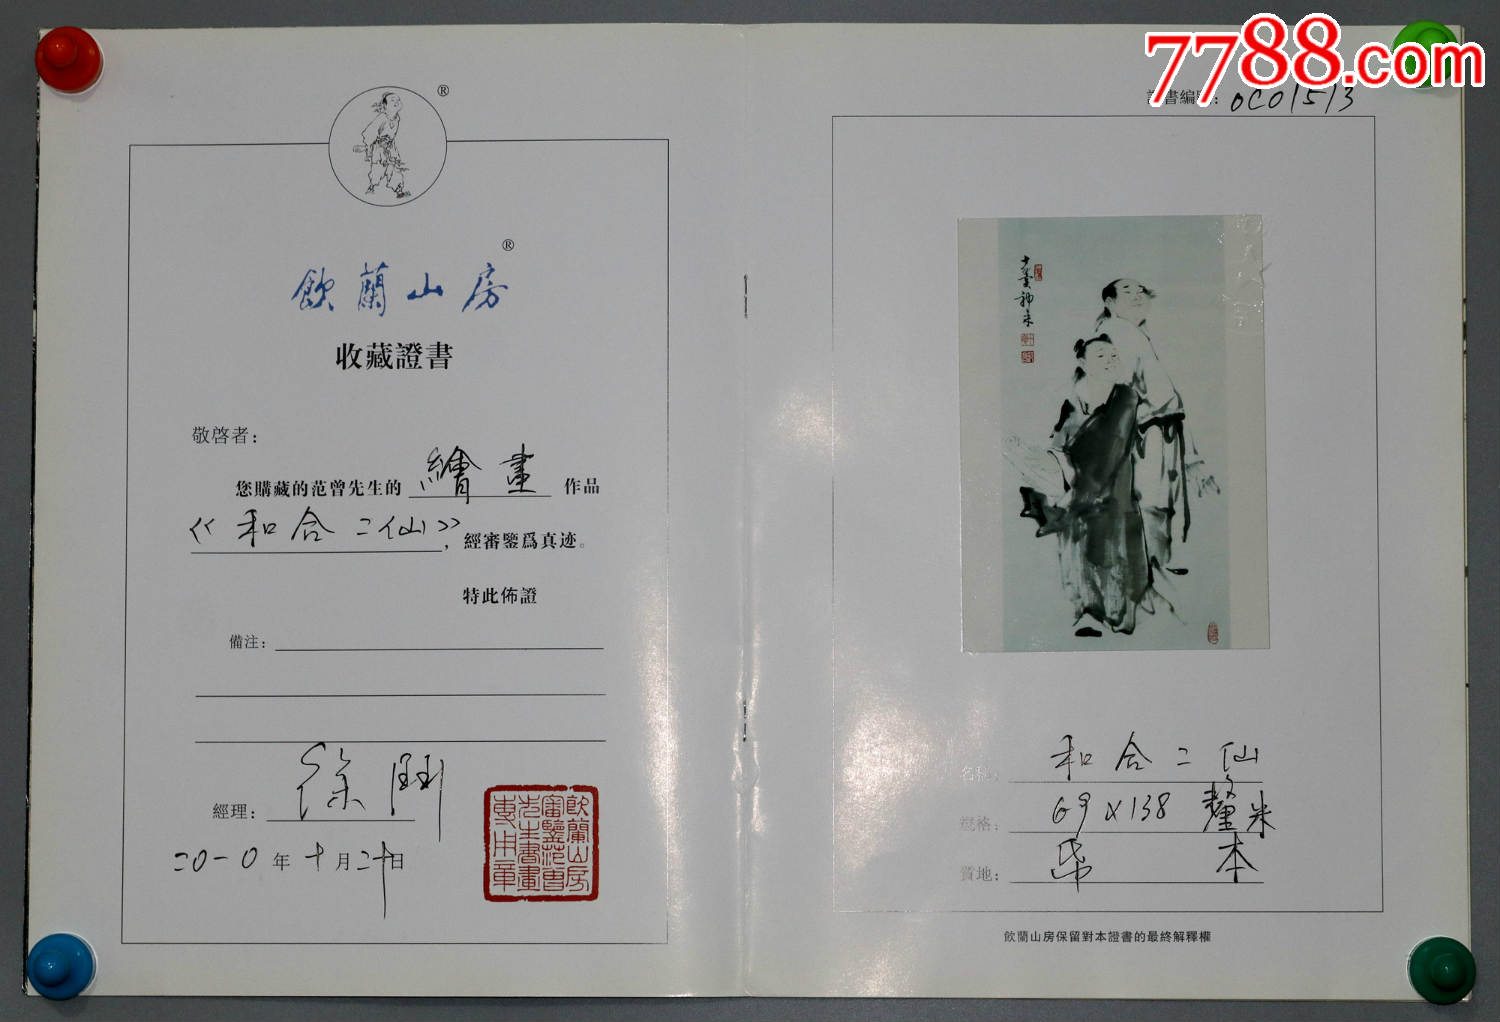 ®
飲蘭山房®
收藏證書
敬啓者：
您購藏的范曾先生的 繪畫 作品
《和合二仙》，經審鑒爲真迹。
特此佈證
備注：
經理：徐
二〇一〇年十月二十日
飲蘭山房
審鑒范曾
先生書畫
專用章
7788.com
證書編號：0C01513
十翼神來
名稱：和合二仙
規格：69X138釐米
質地：紙本
飲蘭山房保留對本證書的最終解釋權